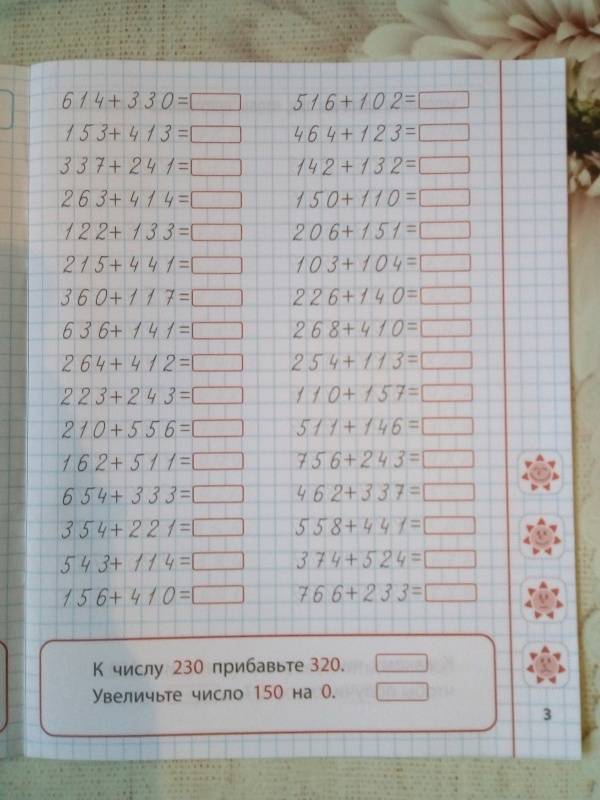 614+330=
153+413=
337+241=
263+414=
122+133=
215+441=
360+117=
636+141=
264+412=
223+243=
210+556=
162+511=
654+333=
354+221=
543+114=
156+410=
516+102=
464+123=
142+132=
150+110=
206+151=
103+104=
226+140=
268+410=
254+113=
110+157=
511+146=
756+243=
462+337=
558+441=
374+524=
766+233=
К числу 230 прибавьте 320.
Увеличьте число 150 на 0.
3